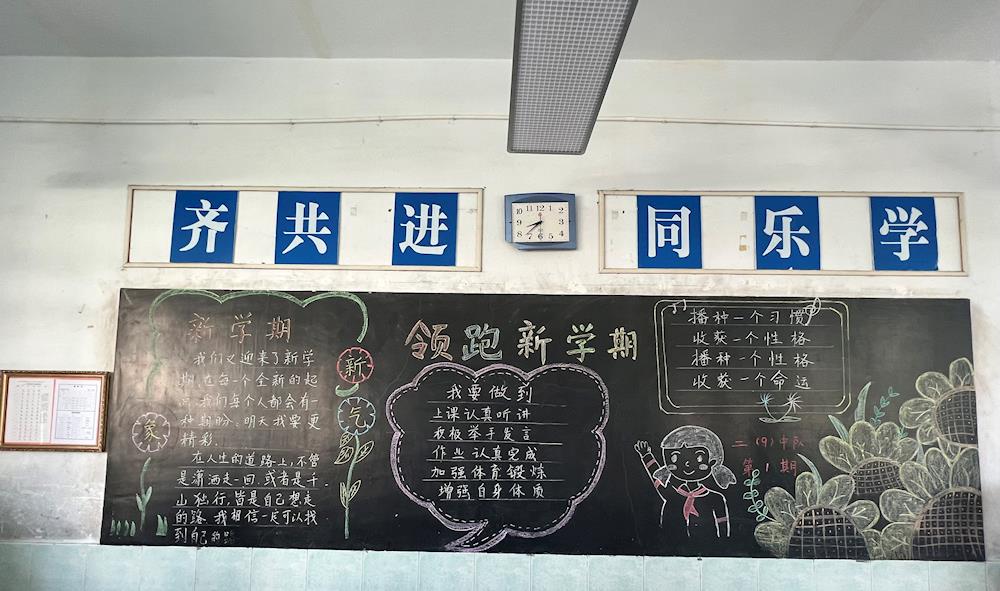 齐共进
同乐学
新学期
我们又迎来了新学
期.在每一个全新的起
点.我们每个人都会有一
种期盼.明天我要更
精彩.
在人生的道路上,不管
是潇洒走一回,或者是千
山独行,皆是自己想走
的路.我相信一定可以找
到自己的路
新
气
象
领跑新学期
我要做到
上课认真听讲
积极举手发言
作业认真完成
加强体育锻炼
增强自身体质
播种一个习惯
收获一个性格
播种一个性格
收获一个命运
二(9)中队
第1期